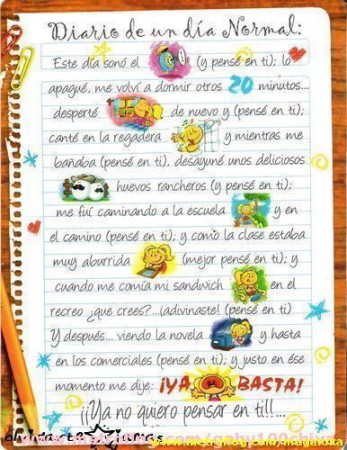 Diario de un día Normal:
Este día sonó el (y pensé en ti); lo
apagué, me volví a dormir otros 20 minutos...
desperté de nuevo y (pensé en ti);
canté en la regadera y mientras me
bañaba (pensé en ti), desayuné unos deliciosos
huevos rancheros (y pensé en ti);
me fui caminando a la escuela y en
el camino (pensé en ti); y como la clase estaba
muy aburrida (mejor pensé en ti); y
cuando me comía mi sandwich en el
recreo ¿que crees?...¡adivinaste! (pensé en ti)
Y después... viendo la novela y hasta
en los comerciales (pensé en ti); y justo en ése
momento me dije: ¡YA BASTA!
¡¡Ya no quiero pensar en ti!!...